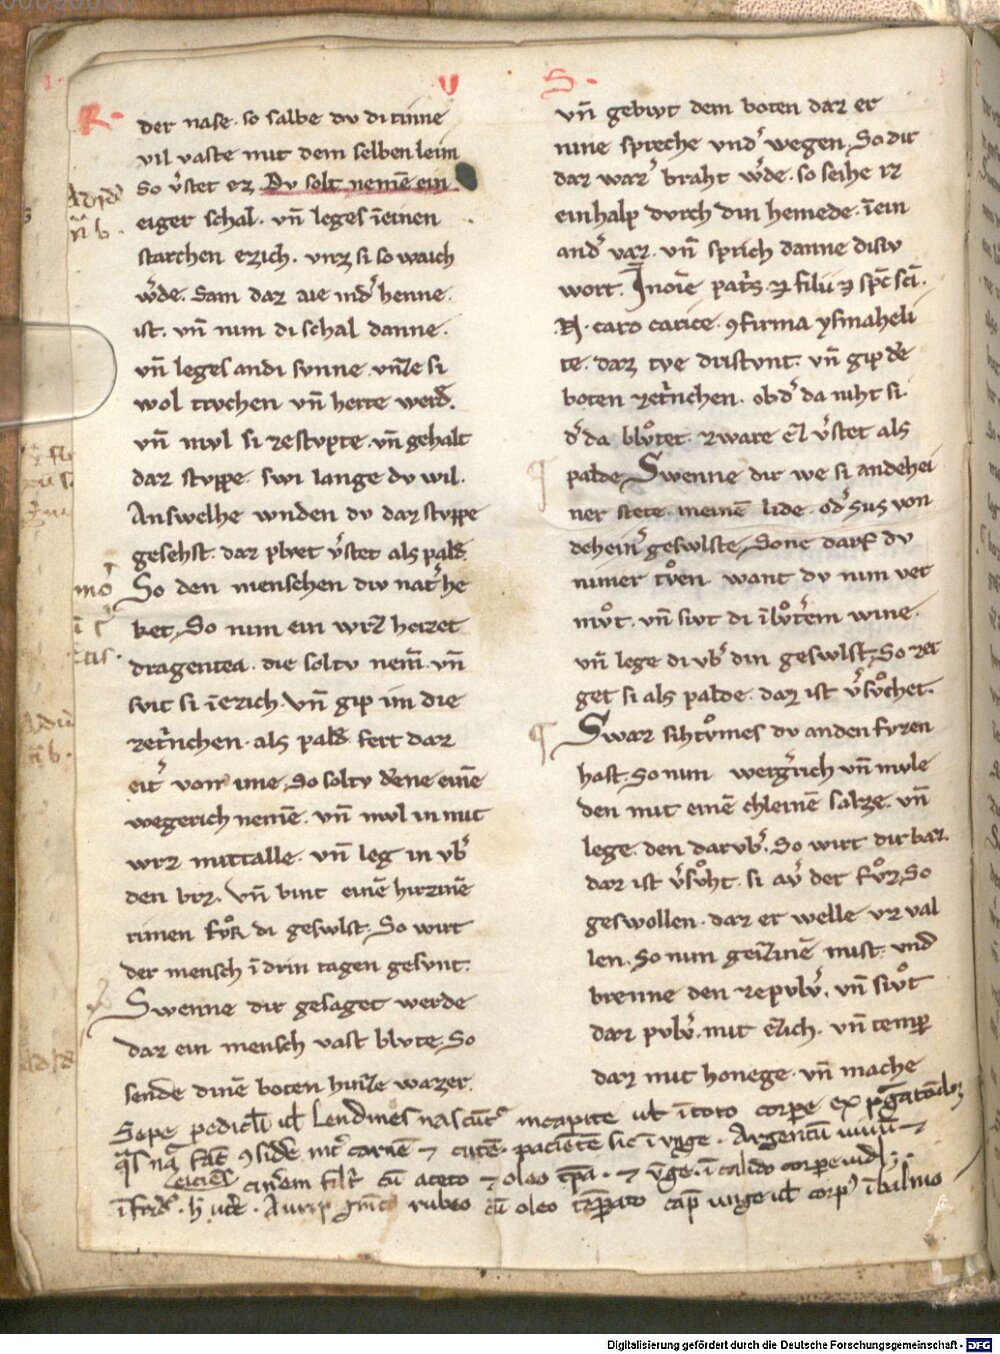 R·
V
S·
der nase· so salbe dv di tinne
vil vaste mit dem selben leim
So v̾stet ez. Dv solt nemē ein
eiger schal· vn̄ leges īeinen
starchen ezich· vnz si so waich
w̾de. Sam daz aie ind̾ henne·
ist· vn̄ nim di schal danne·
vn̄ leges andi svnne vn̄ si
wol trvchen vn̄ herte werd̾.
vn̄ mvl si zestvpte· vn̄ gehalt
daz stvppe· swi lange dv wil·
Answelhe wnden dv daz stvppe
gesehst· daz plvet v̾stet als pald̾
So den menschen div nat̾ he
ket. So nim ein wrz heizet
dragentea· die soltv nem̄ vn̄
svit si īezich. Vn̄ gip im die
ze t̾nchen· als pald̾ fert daz
eit̾ von ime. So soltv d̾ene einē
wegerich nemē· vn̄ mvl in mit
wrz mittalle· vn̄ leg in vb̾
den biz. Vn̄ bint einē hirzinē
rimen fvͦr di geswlst· So wirt
der mensch ī drin tagen gesvnt·
Swenne dir gesaget werde
daz ein mensch vast blvte. So
sende dinē boten hinze wazer·
vn̄ gebivt dem boten daz er
nine spreche vnd̾ wegen. So dir
daz waz̾ braht w̾de· so seihe iz
einhalp dvrch din hemede· īein
and̾ vaz· vn̄ sprich danne disiv
wort· Inoīe pat̾s· ⁊ filii ⁊ sp̄c sc̄i·
N· caro carice· ꝯfirma ysmaheli
te· daz tve dristvnt· vn̄ gip de̾
boten zet̾nchen· obd̾ da niht si·
d̾ da blvͦtet· zware ez v̾stet als
palde. Swenne dir we si andehei
ner stete· meinē lide· od̾ svs von
dehein̾ geswlste. Sone darf dv
nimer tvͦen· want dv nim vet
mvͦt· vn̄ sivt di ī lvͦt̾em wine·
vn̄ lege di vb̾ din geswlst. So zer
get si als palde· daz ist v̾svͦchet·
Swaz sihtvͦmes dv anden fvzen
hast· So nim weig̾rich vn̄ mvle
den mit einē chleinē salze· vn̄
lege den darvb̾· So wirt dir baz·
daz ist v̾svͦht· si av̾ der fvͦz. So
geswollen· daz er welle vz val
len· So nim geizinē mist· vnd
brenne den zepvlv̾· vn̄ sivͦt
daz pvlv̾· mit ezich· vn̄ temp̄
daz mit honege· vn̄ mache
Sepe pedicl̄i ul̾ Lendines nascūt̾ incapite ul̾ ītoto corpore ex
carnē ⁊ cutē· paciētē sic ī vnge· Argentū uiuū ⁊
cinerem cū aceto ⁊ oleo ⁊ v̄ge· ī calido corpore
Aurip rubeo cū oleo cap̄ unge ul̾ corp̾ ī balneo
Digitalisierung gefördert durch die Deutsche Forschungsgemeinschaft - DFG